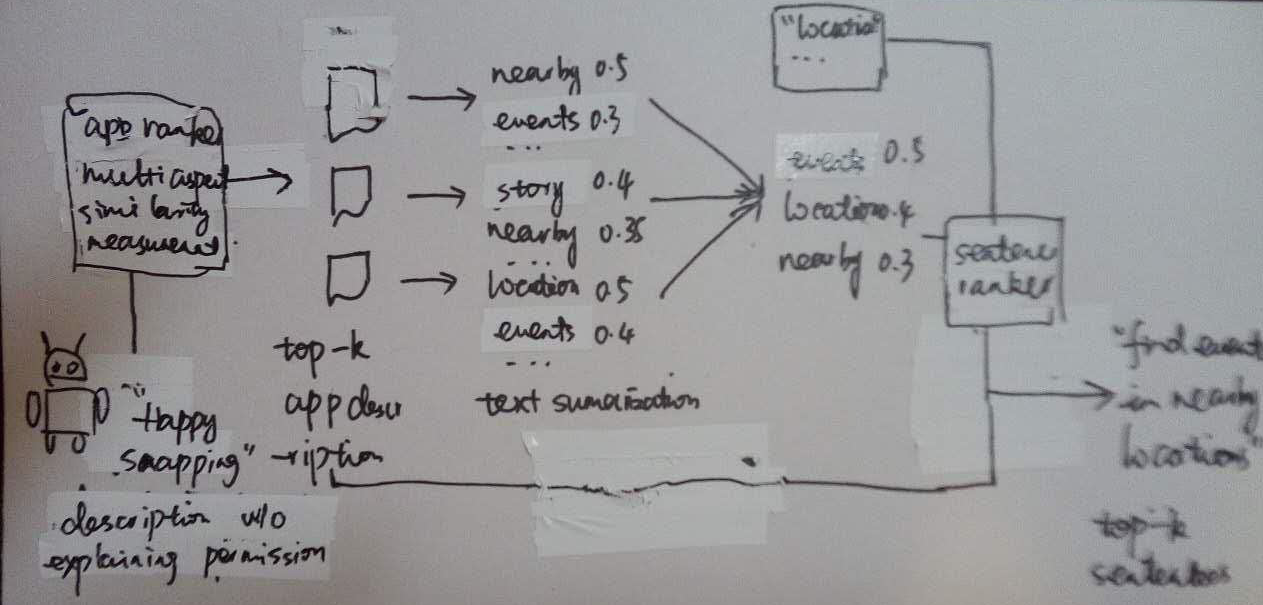 app ranker
multi aspect
similarity
measurement
"Happy
snapping"
description w/o
explaining permission
top-k
app descr
-ription
nearby 0.5
events 0.3
...
story 0.4
nearby 0.35
...
location 0.5
events 0.4
...
text sumarization
"location"
...
events 0.5
location 0.4
nearby 0.3
sentence
ranker
"find event
in nearby
locations"
top-k
sentences